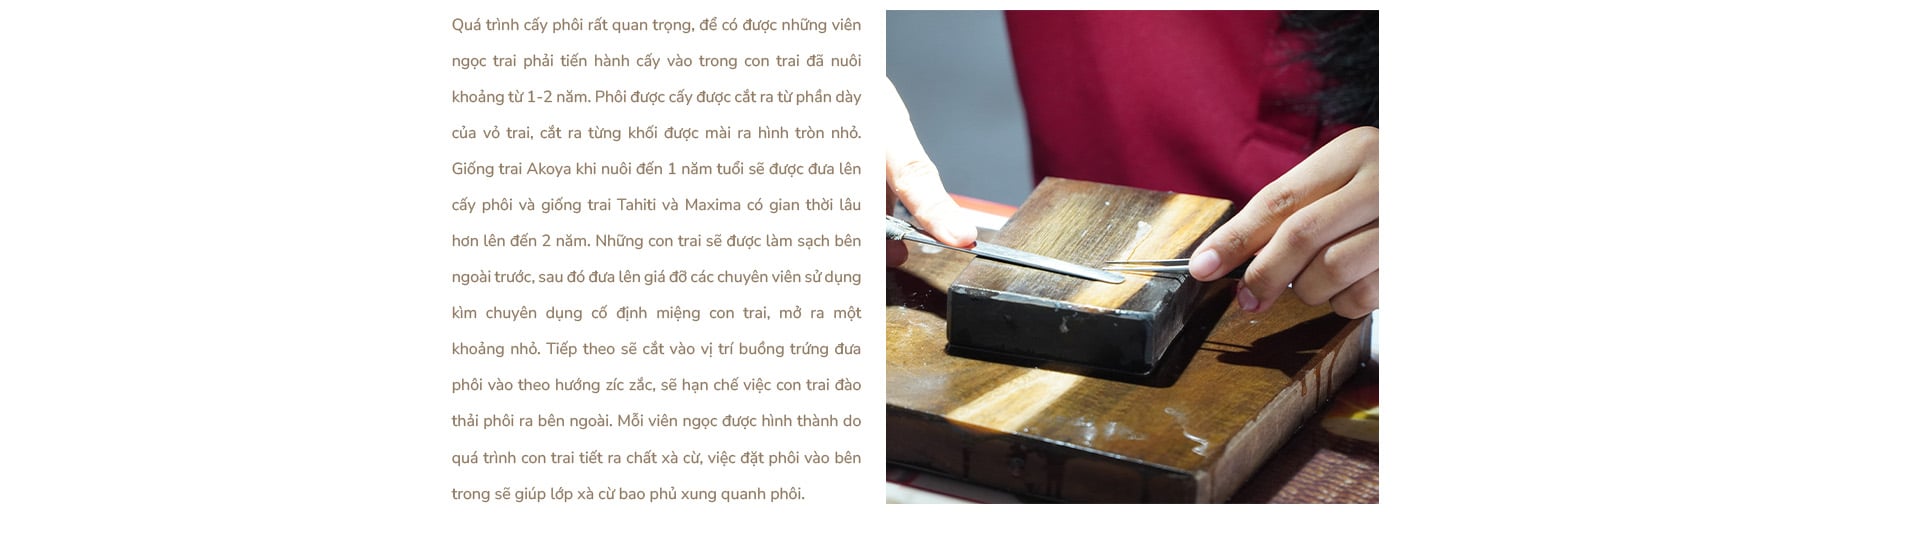 Quá trình cấy phôi rất quan trọng, để có được những viên
ngọc trai phải tiến hành cấy vào trong con trai đã nuôi
khoảng từ 1-2 năm. Phôi được cấy được cắt ra từ phần dày
của vỏ trai, cắt ra từng khối được mài ra hình tròn nhỏ.
Giống trai Akoya khi nuôi đến 1 năm tuổi sẽ được đưa lên
cấy phôi và giống trai Tahiti và Maxima có gian thời lâu
hơn lên đến 2 năm. Những con trai sẽ được làm sạch bên
ngoài trước, sau đó đưa lên giá đỡ các chuyên viên sử dụng
kìm chuyên dụng cố định miệng con trai, mở ra một
khoảng nhỏ. Tiếp theo sẽ cắt vào vị trí buồng trứng đưa
phôi vào theo hướng zíc zắc, sẽ hạn chế việc con trai đào
thải phôi ra bên ngoài. Mỗi viên ngọc được hình thành do
quá trình con trai tiết ra chất xà cừ, việc đặt phôi vào bên
trong sẽ giúp lớp xà cừ bao phủ xung quanh phôi.